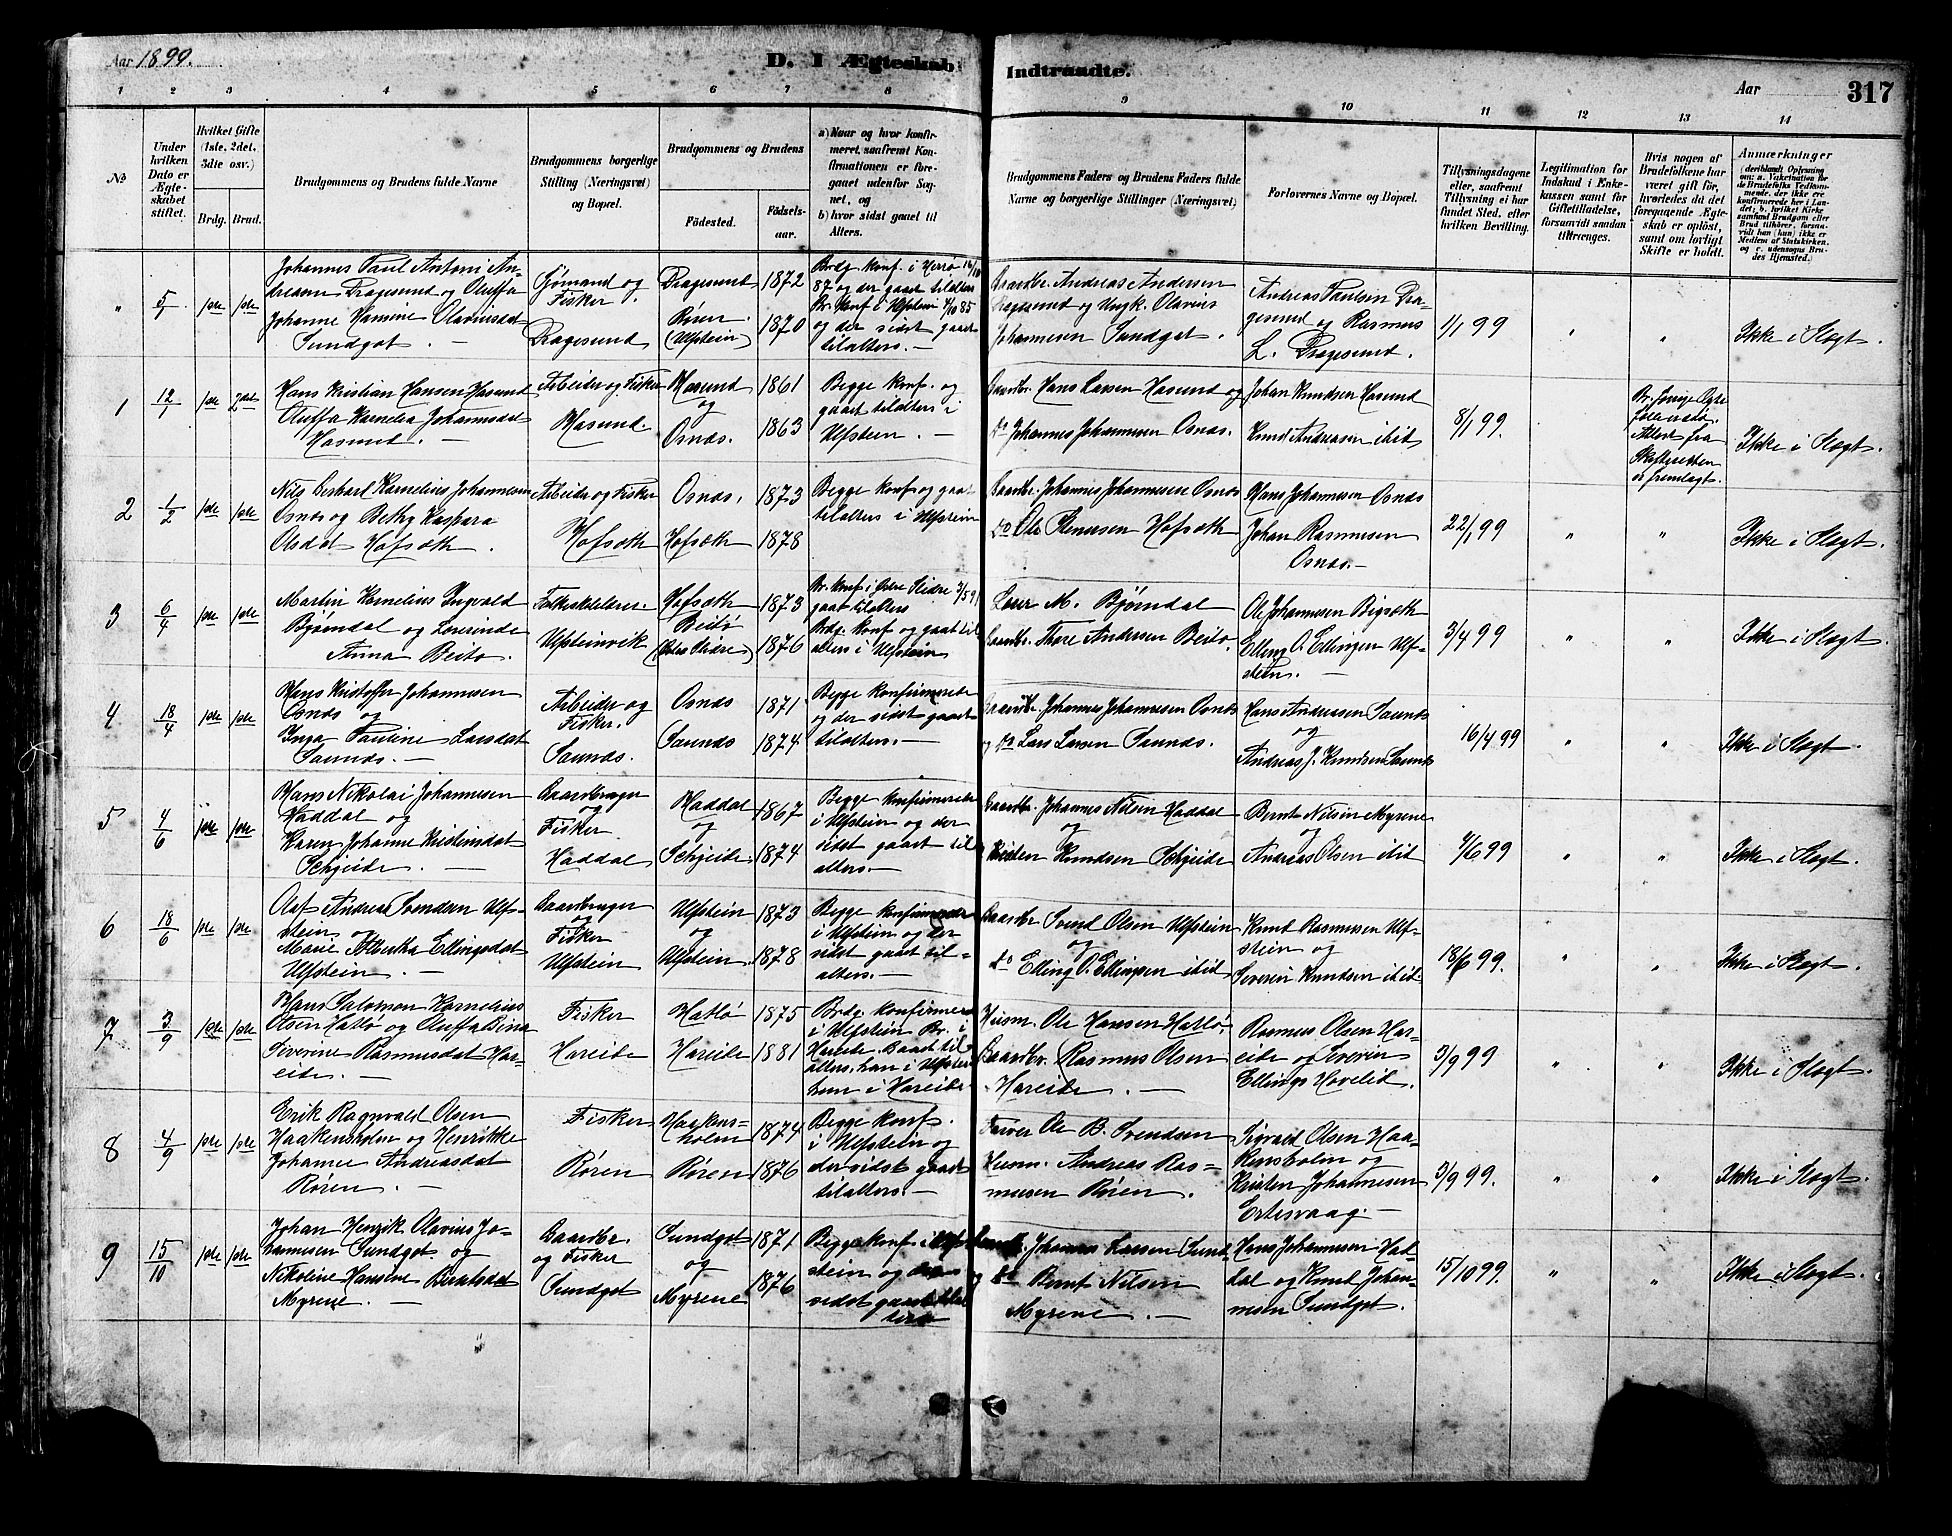 Aar 1899.
D. I Ægteskab Indtraadte.
Aar
317
1 2 3 4 5 6 7 8 9 10 11 12 13 14
No
Under hvilken Dato er Ægteskabet stiftet.
Hvilket Gifte (1ste, 2det, 3die osv.)
Brdg. Brud.
Brudgommens og Brudens fulde Navne
Brudgommens borgerlige Stilling (Næringsvei) og Bopæl.
Brudgommens og Brudens
Fødested.
Fødselsaar.
a) Naar og hvor konfirmeret, saafremt Konfirmationen er foregaaet udenfor Sognet, og
b) hvor sidst gaaet til Alters.
Brudgommens Faders og Brudens Faders fulde Navne og borgerlige Stillinger (Næringsvei)
Forlovernes Navne og Bopæl.
Tillysningsdagene eller, saafremt Tillysning ei har fundet Sted, efter hvilken Bevilling.
Legitimation for Indskud i Enkekassen samt for Giftetilladelse, forsaavidt saadan tiltrænges.
Hvis nogen af Brudefolkene har været gift før, hvorledes da det foregaaende Ægteskab er opløst, samt om lovligt Skifte er holdt.
Anmærkninger
(deriblandt Oplysning om: a. Vakcination for de Brudefolks Vedkommende, der ikke ere konfirmerede her i Landet; b. hvilket Kirkesamfund Brudgom eller Brud tilhører, forsaavidt han (hun) ikke er Medlem af Statskirken, og c. udensogns Brudes Hjemsted.)
" 5/1 1ste 1ste
Johannes Paul Antoni Andreasen Dragesund og Oluffa
Johanne Hamine Olavusdat
Sundgot. —
Gjømand og
Fisker.
Dragesund
Dragesund
Røren
(Ulfstein)
1872
1870
Brdg. konf. i Herrø
87 og der gaaet tilalters
Br. konf. i Ulfstein 4/10 85
og der sidst gaaet
tilalters. —
Gaardbr. Andreas Andersen
Dragesund og Ungk. Olavius
Johannesen Sundgot.
Andreas Paulsen Dragesund og Rasmus
L. Dragesund.
1/1 99
" "
Ikke i Slægt.
1 12/1 1ste 2det
Hans Kristian Hansen Hasund
Oluffa Kornelia Johannesdat
Hasund. —
Arbeider og Fisker
Hasund
Hasund
og
Osnæs.
1861
1863
Begge konf. og
gaaet tilalters i
Ulfstein. —
Gaardbr. Hans Larsen Hasund og
do Johannes Johannesen Osnæs.
Johan Knudsen Hasund
Knud Andreasen itid
8/1 99.
Attest fra
Skifteretten
er fremlagt.
Ikke i Slægt.
2 1/2 1ste 1ste
Nils Gerhart Kornelius Johannesen
Osnæs og Bethy Kaspara
Olsdat Hofsæth.
Arbeider og Fisker
Hofsæth
Osnæs.
Hofsæth
1873
1878
Begge konf. og gaaet
tilalters i Ulfstein
Gaardbr. Johannes Johannesen Osnæs
do Ole Stenersen Hofsæth
Hans Johannesen Osnæs
Johan Rasmusen
Osnæs. —
22/1 99
" "
Ikke i Slægt.
3 6/4 1ste 1ste
Martin Kornelius Ingvald
Bjørndal og Loverinde
Anna Beito.
Folkeskolelærer.
Ulfsteinvik
Hofsæth
Beitø
(Østre Slidre)
1873
1876
Br. konf. i Østre Slidre 7/5 91
gaaet tilalters
Brdg. konf. og gaaet til
alters i Ulfstein
Lærer M. Bjørndal
Gaardbr. Thore Andersen Beito.
Ole Johannesen Bigsæth
Elling O. Ellingsen Ulfstein. —
3/4 99
" "
Ikke i Slægt.
4 18/4 1ste 1ste
Hans Kristoffer Johannesen
Osnæs og
Inga Pauline Larsdat
Saunæs. —
Arbeider og
Fisker.
Saunæs.
Osnæs
Saunæs
1871
1874.
Begge konfirmerede
og der sidst gaaet
tilalters. —
Gaardbr. Johannes Johannesen Osnæs
og do Lars Larsen Saunæs.
Hans Andreassen Saunæs
og
Andreas J. Knudsen Saunæs
16/4 99
" "
Ikke i Slægt.
5 4/6 1ste 1ste
Hans Nikolai Johannesen
Haddal og
Karen Johanne Kristensdat
Schjeide. —
Gaardbruger
og
Fisker
Haddal
Haddal
og
Schjeide.
1867
1874
Begge konfirmerede
i Ulfstein og der
sidst gaaet til
alters. —
Gaardbr. Johannes Nilsen Haddal
og
Kristen Knudsen Schjeide
Bernt Nilsen Myrene
og
Andreas Olsen itid
4/6 99
" "
Ikke i Slægt.
6 18/6 1ste 1ste
Olaf Andreas Svendsen Ulfstein og
Marie Alberta Ellingsdat
Ulfstein. —
Gaardbruger
og
Fisker
Ulfstein
Ulfstein
og
Ulfstein.
1873
1878
Begge konfirmerede
i Ulfstein og der
sidst gaaet tilalters. —
Gaardbr Svend Olsen Ulfstein
og
do Elling O. Ellingsen itid
Knud Rasmusen Ulfstein og
Severin Knudsen itid
18/6 99.
" "
Ikke i Slægt.
7 3/9 1ste 1ste
Hans Salomon Kornelius
Olsen Hatlø og Oluffa Bina
Siverine Rasmusdat Hareide. —
Fisker
Hareide
Hatlø
Hareide
1875
1881
Brdg. konfirmeret
i Ulfstein Br. i
Hareide. Gaaet tilalters, han i Ulfstein
hun i Hareide
Husm. Ole Hansen Hatlø,
Gaardbr. Rasmus Olsen
Hareide. —
Rasmus Olsen Hareide og Severin
Ellings Hovelid.
3/9 99
" "
Ikke i Slægt.
8 4/9 1ste 1ste
Erik Ragnvald Olsen
Haakensholm og Henrikke
Johanne Andreasdat
Røren. —
Fisker
Røren
Haakensholm
Røren
1874
1876
Begge konf.
i Ulfstein og
der sidst gaaet
tilalters. —
Ole B. Svendsen
Husm. Andreas Rasmusen Røren.
Sigvald Olsen Haakensholm og
Kristen Johannesen
Ertesvaag. —
3/9 99.
" "
Ikke i Slægt.
9 15/10 1ste 1ste
Johan Henrik Olavius Johannesen Sundgot og
Nikoline Hansine Berntsdat
Myrene. —
Gaardbr.
og Fisker
Sundgot
Sundgot
og
Myrene
1871
1876
Begge konf. i Ulfstein og der
sidst gaaet til
alters
Gaardbr. Johannes Larsen Sundgot
og do Bernt Nilsen
Myrene. —
Hans Johannesen Haddal og Knut Johannesen Sundgot.
15/10 99.
" "
Ikke i Slægt.